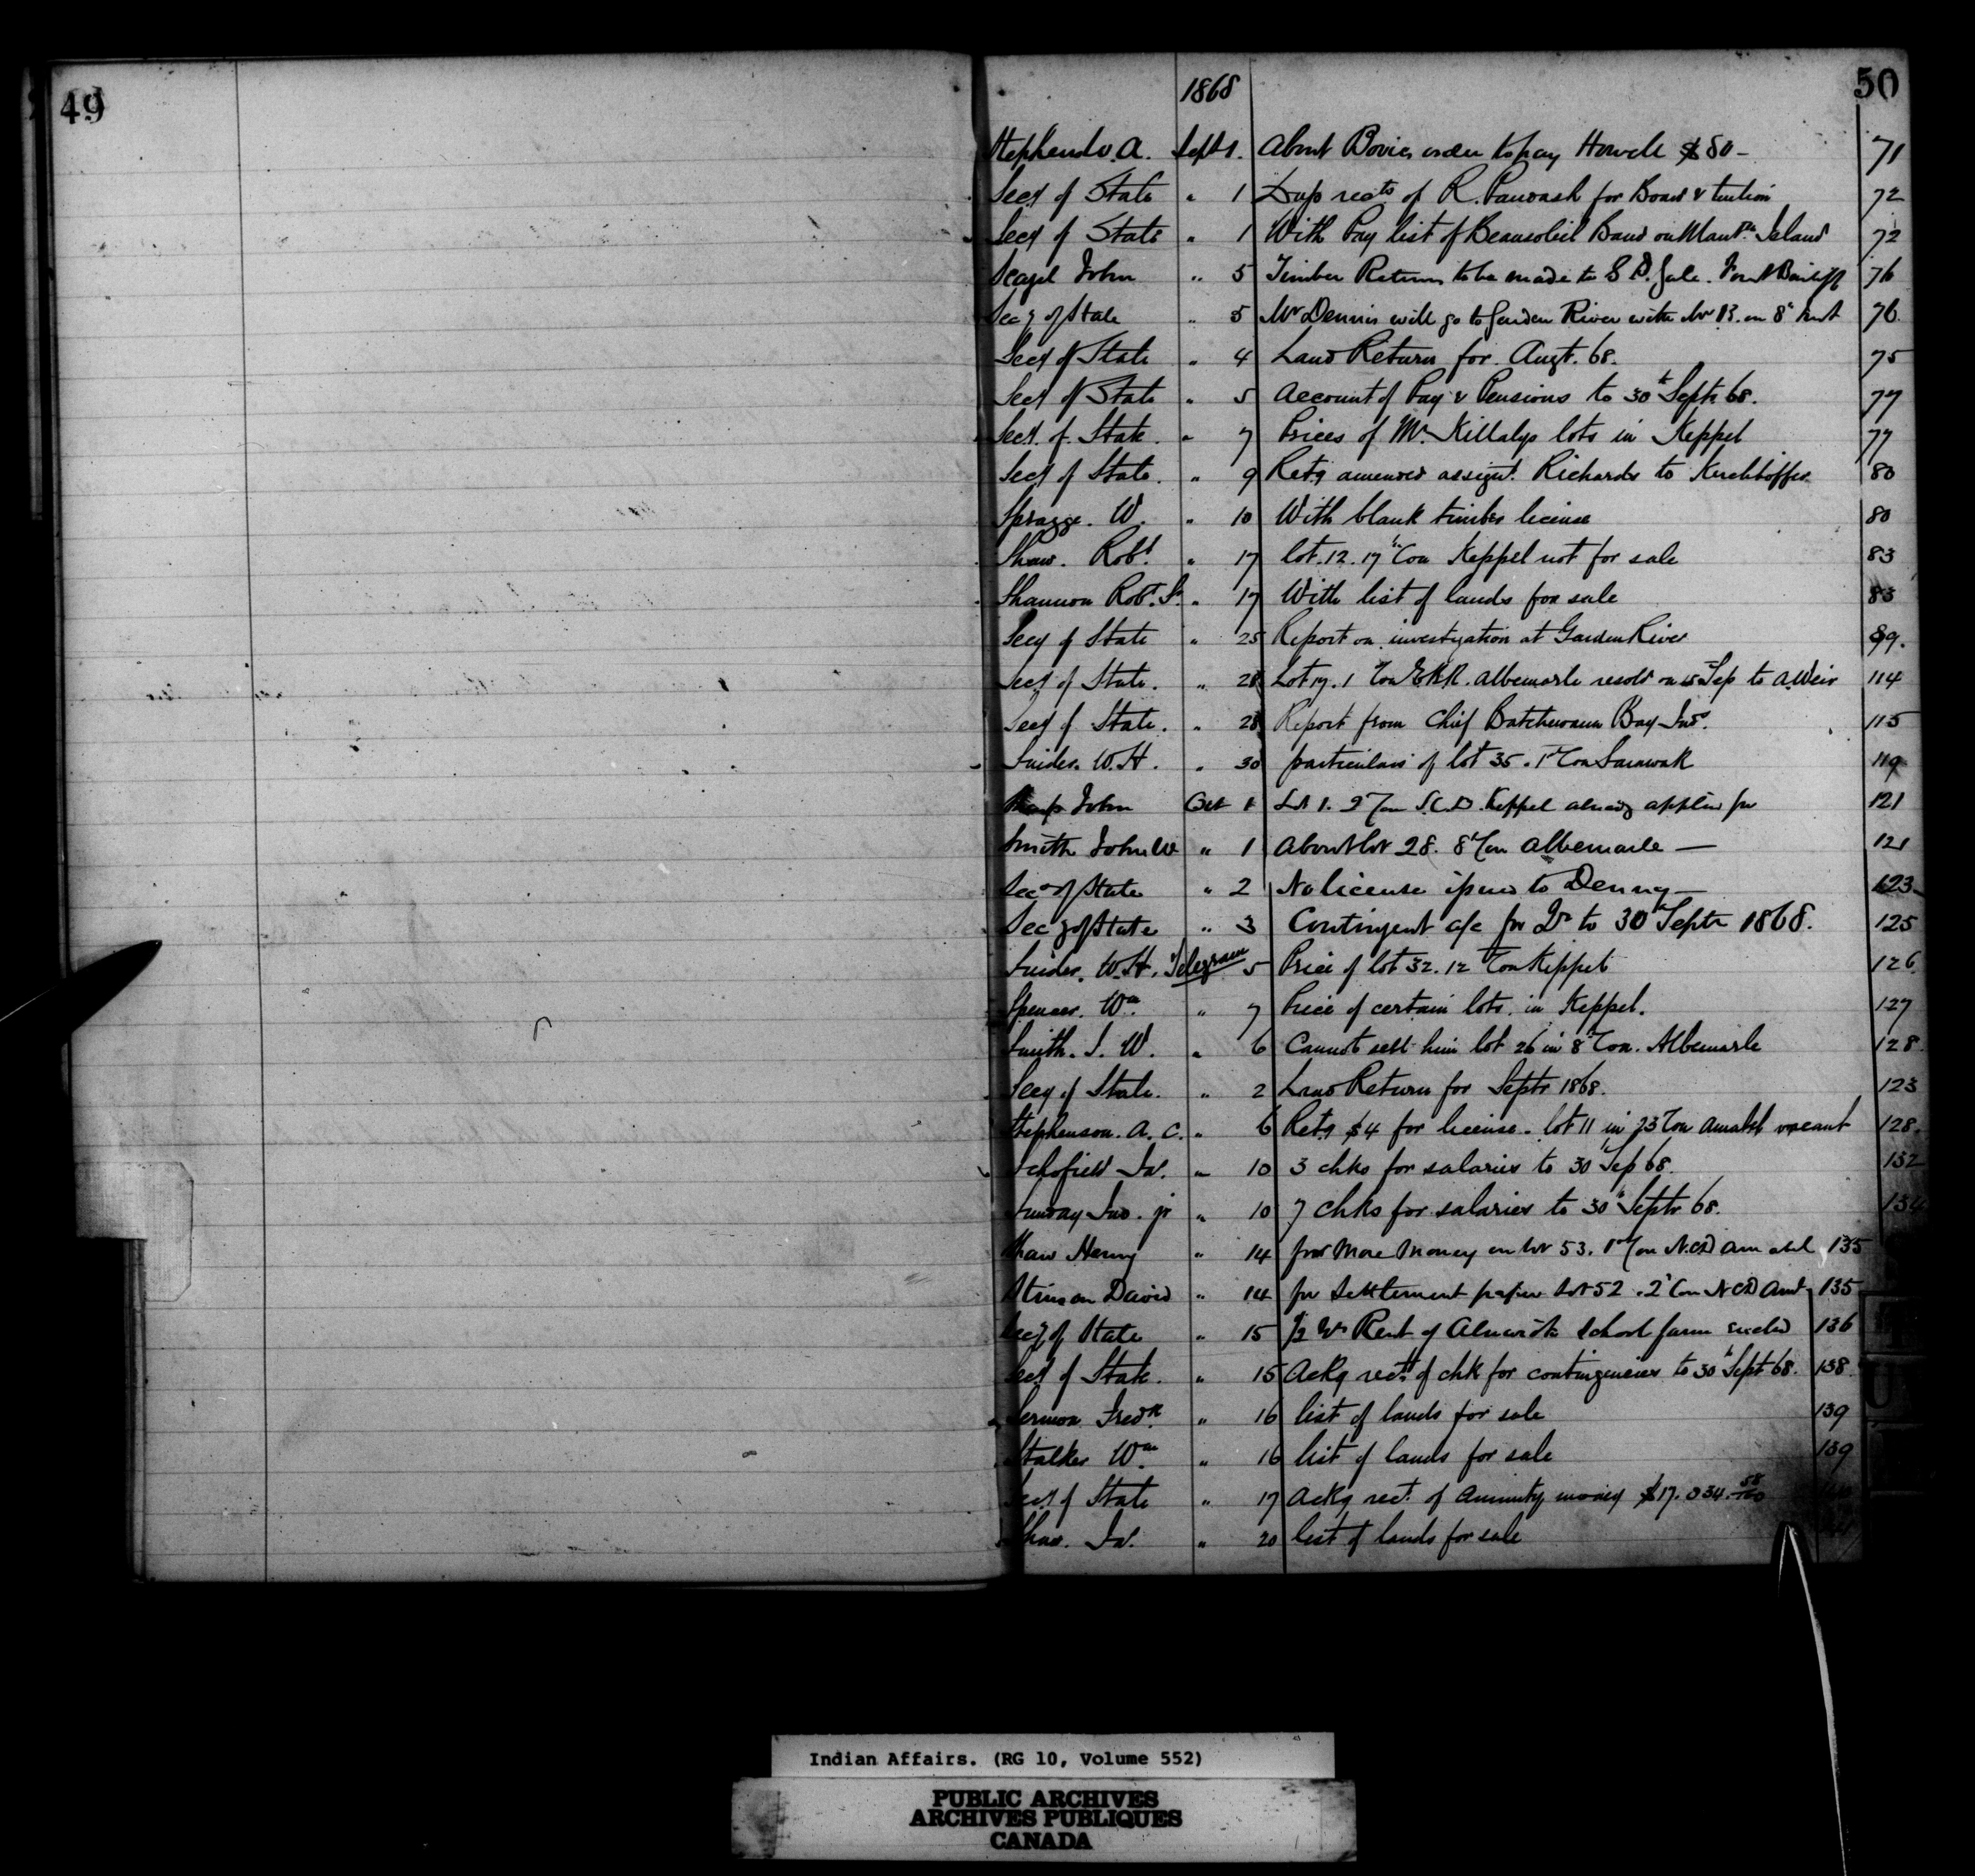 49
50
1868
Stephens A. Sept 1. About Bovies order to pay Howell $80 – 71
Secy of State " 1 Dup rects of R. Pawash for Board & tuition 72
Secy of State " 1 With Pay list of Beausoleil Band on Mantn Island 72
John " 5 Timber Returns to be made to S. 76
Secy of State " 5 Mr Dennis will go to Garden River with Mr B. on 8th 76
Secy of State " 4 Land Return for Augt. 68. 75
Secy of State " 5 Account of Pay & Pensions to 30th Septr 68. 77
Secy of State. " 7 Prices of Mr Killalys lots in Keppel 77
Secy of State. " 9 Retg amended assignt. Richards to Kirchhoffer 80
Spragge. W. " 10 With blank timber license 80
Shaw. Robt. " 17 lot. 12. 17th Con Keppel not for sale 83
Shannon Robt. Sr. " 17 With list of lands for sale 83
Secy of State " 25 Report on investigation at Garden River 99.
Secy of State. " 28 Lot 17. 1 Con E.B.R. Albemarle resold on 15th Sep to A. Weir 114
Secy of State. " 28 Report from Chief Batchewana Bay Inds. 115
Snider. W. H. " 30 particulars of lot 35. 1st Con Sarawak 119
John Oct 1 Lot 1. 2d Con S.C.D. Keppel already applied for 121
Smith John W " 1 About lot 28. 8th Con Albemarle — 121
Secy of State " 2 No license issued to Denny — 123
Secy of State " 3 Contingent a/c for Qr to 30th Septr 1868. 125
Snider. W. H. Telegram 5 Price of lot 32. 12 Con Keppel 126
Spencer. Wm " 7 Price of certain lots in Keppel. 127
Smith. J. W. " 6 Cannot sell him lot 26 in 8th Con. Albemarle 128
Secy of State. " 2 Land Return for Septr 1868. 123
Stephenson. A. C. " 6 Retg $4 for license. lot 11 in 23 Con Amabel vacant 128.
Schofield Js. " 10 3 chks for salaries to 30th Sep 68. 132
Sunday Jno. jr " 10 7 chks for salaries to 30th Septr 68. 134
Shaw Henry " 14 for More Money on lot 53. 1st Con N.C.D Amabel 135
Stinson David " 14 for Settlement papers Lot 52. 2d Con N C D Aml 135
Secy of State " 15 1/2 yrs Rent of Alnwick School farm recd 136
Secy of State. " 15 Ackg rect of chk for contingencies to 30th Sept 68. 138
Sermon Fredk. " 16 list of lands for sale 139
Stalker Wm " 16 list of lands for sale 139
Secy of State " 17 Ackg rect. of Annuity money $17.034.58/100
Shaw. Js. " 20 list of lands for sale
Indian Affairs. (RG 10, Volume 552)
PUBLIC ARCHIVES
ARCHIVES PUBLIQUES
CANADA